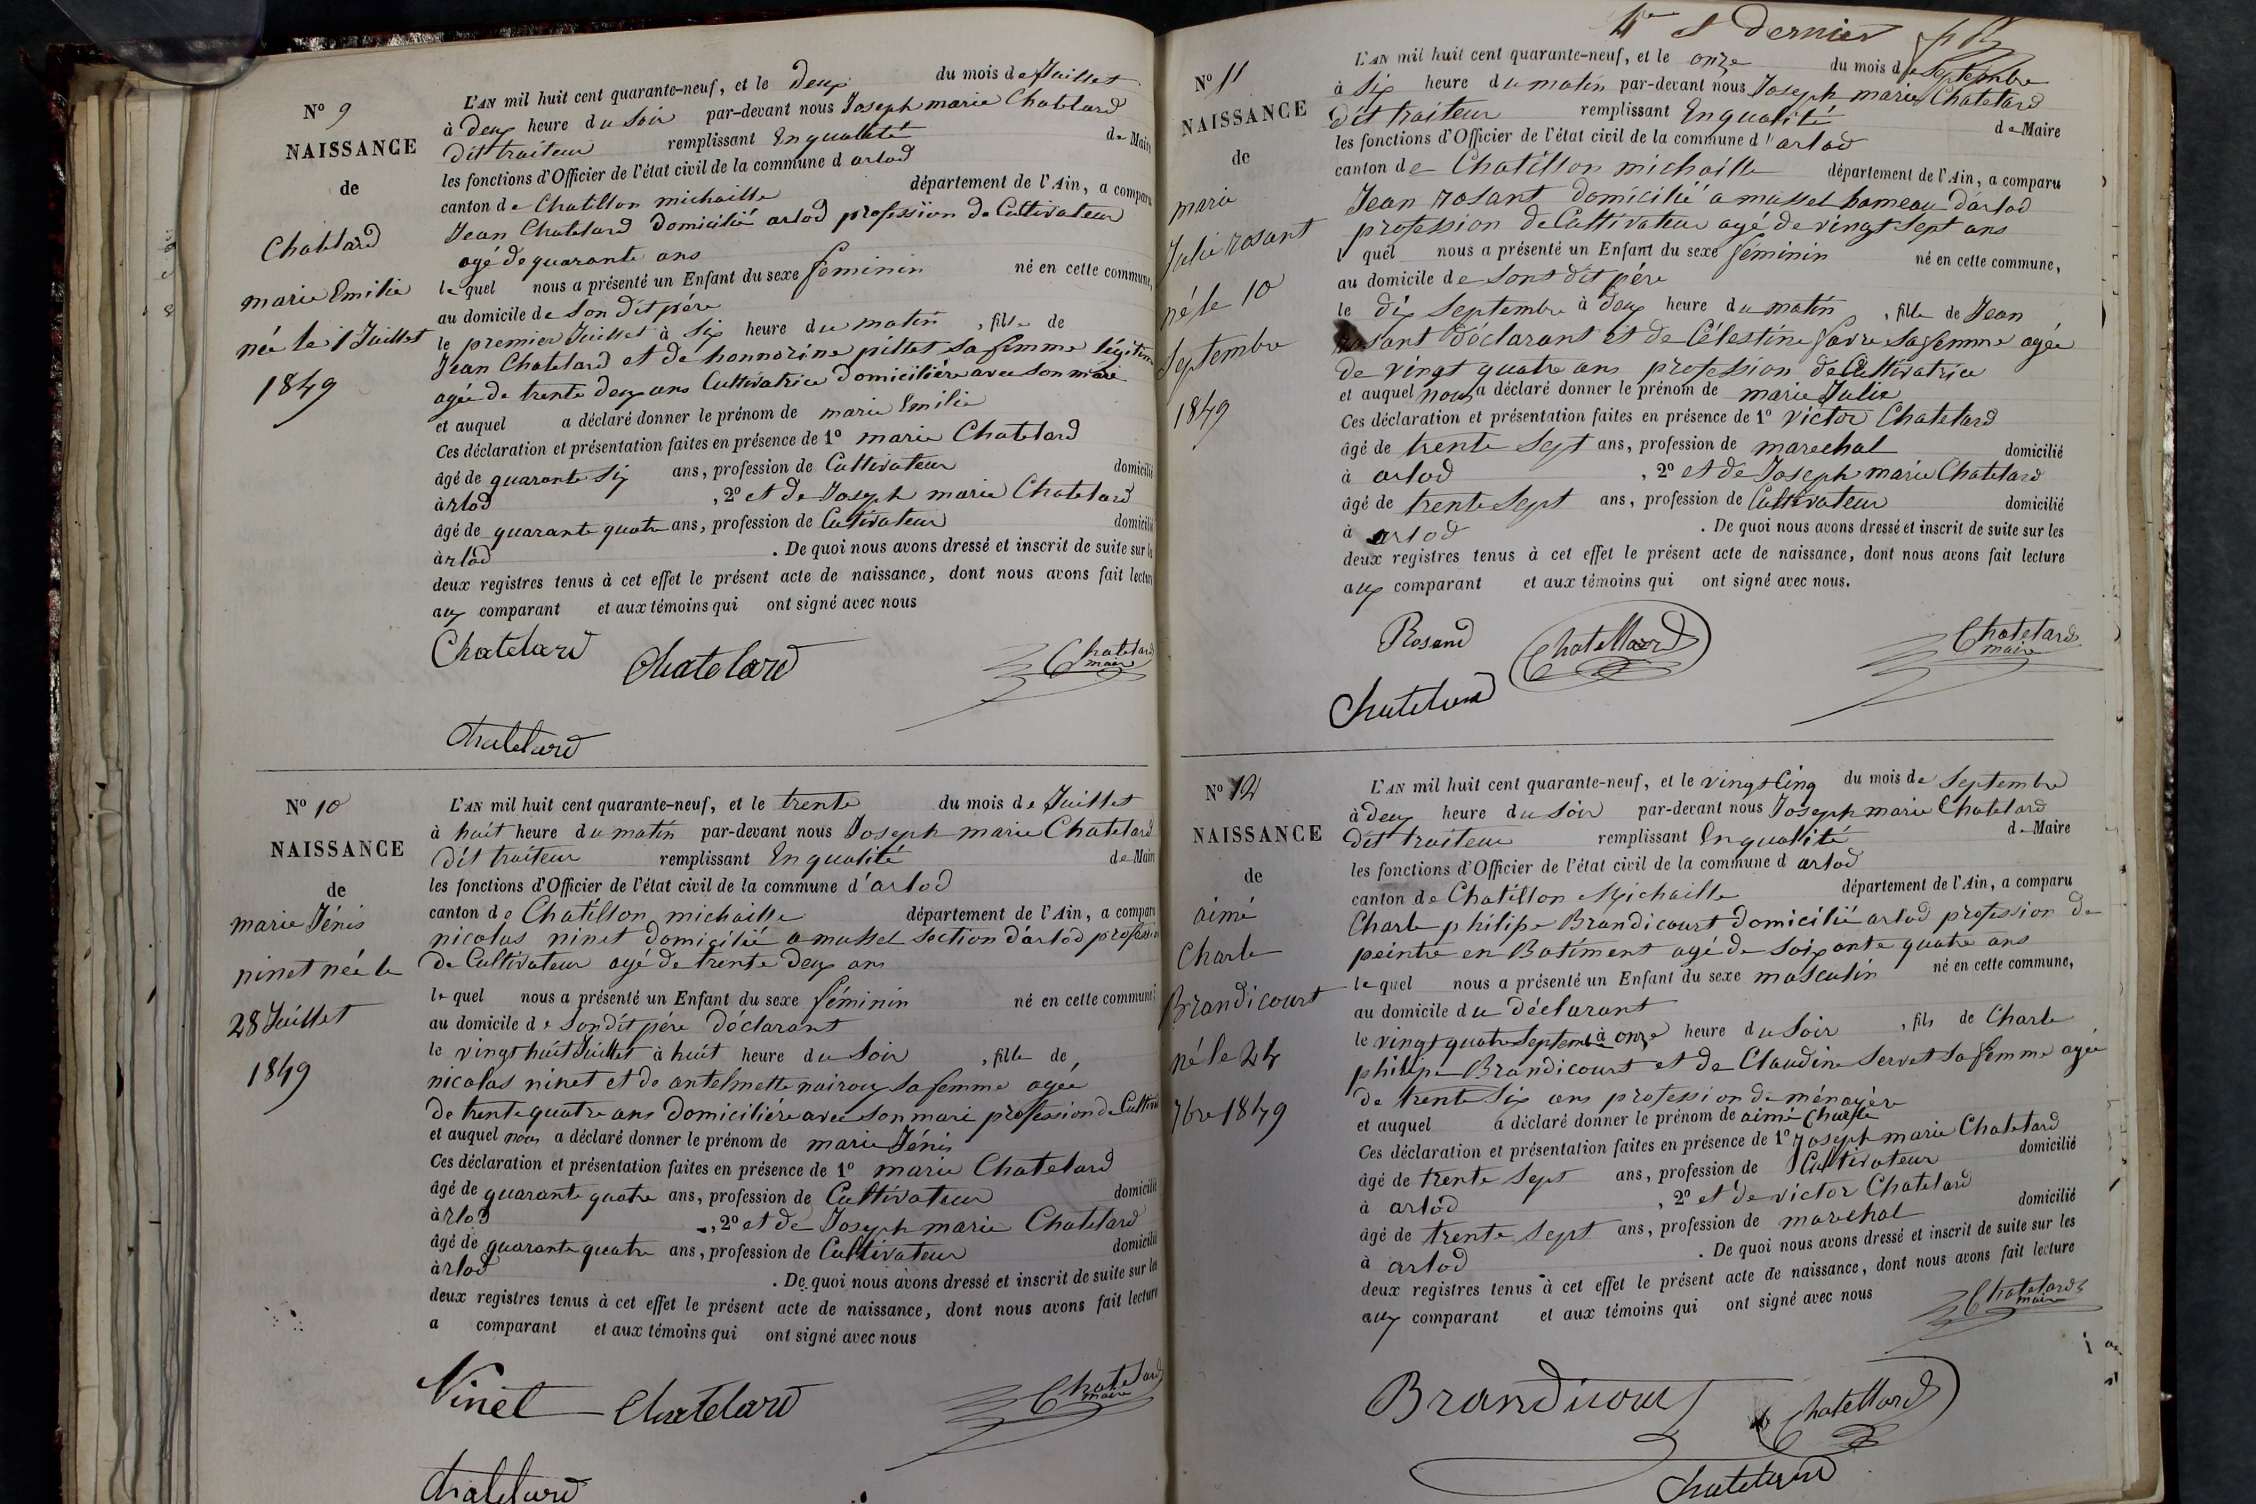 N° 9
NAISSANCE
de
Chatelard
marie Emilie
née le 1 Juillet
1849
L'AN mil huit cent quarante-neuf, et le deux du mois de Juillet
à deux heure du soir par-devant nous Joseph marie Chatelard
dit traiteur remplissant En qualité de Maire
les fonctions d'Officier de l'état civil de la commune d arlod
canton de Chatillon michaille département de l'Ain, a comparu
Jean Chatelard domicilié arlod profession de Cultivateur
agé de quarante ans
le quel nous a présenté un Enfant du sexe feminin né en cette commune,
au domicile de son dit pére
le premier Juillet à six heure du matin , fille de
Jean Chatelard et de honnorine pillet sa femme légitime
agée de trente deux ans Cultivatrice domiciliére avec son mari
et auquel a déclaré donner le prénom de marie Emilie
Ces déclaration et présentation faites en présence de 1° marie Chatelard
âgé de quarante six ans, profession de Cultivateur domicilié
à rlod , 2° et de Joseph marie Chatelard
âgé de quarante quatre ans, profession de Cultivateur domicilié
à rlod . De quoi nous avons dressé et inscrit de suite sur les
deux registres tenus à cet effet le présent acte de naissance, dont nous avons fait lecture
aux comparant et aux témoins qui ont signé avec nous
Chatelard Chatelard Chatelard maire
Chatelard
N° 10
NAISSANCE
de
marie Jénis
ninet née le
28 Juillet
1849
L'AN mil huit cent quarante-neuf, et le trente du mois de Juillet
à huit heure du matin par-devant nous Joseph marie Chatelard
dit traiteur remplissant En qualité de Maire
les fonctions d'Officier de l'état civil de la commune d'arlod
canton de Chatillon michaille département de l'Ain, a comparu
nicolas ninet domicilié a mussel section d'arlod profession
de Cultivateur agé de trente deux ans
le quel nous a présenté un Enfant du sexe féminin né en cette commune,
au domicile de son dit pére déclarant
le vingt huit Juillet à huit heure du soir , fille de
nicolas ninet et de antelmette sa femme agée
de trente quatre ans domiciliére avec son mari profession de Cultiv
et auquel nous a déclaré donner le prénom de marie Jénis
Ces déclaration et présentation faites en présence de 1° marie Chatelard
âgé de quarante quatre ans, profession de Cultivateur domicilié
à rlod , 2° et de Joseph marie Chatelard
âgé de quarante quatre ans, profession de Cultivateur domicilié
à rlod . De quoi nous avons dressé et inscrit de suite sur les
deux registres tenus à cet effet le présent acte de naissance, dont nous avons fait lecture
a comparant et aux témoins qui ont signé avec nous
Ninet Chatelard Chatelard maire
Chatelard
4me et dernier
N° 11
NAISSANCE
de
marie
Julie rosant
né le 10
Septembre
1849
L'AN mil huit cent quarante-neuf, et le onze du mois de Septembre
à six heure du matin par-devant nous Joseph marie Chatelard
dit traiteur remplissant En qualité de Maire
les fonctions d'Officier de l'état civil de la commune d'arlod
canton de Chatillon michaille département de l'Ain, a comparu
Jean rosant domicilié a mussel hameau d'arlod
profession de Cultivateur agé de vingt sept ans
l quel nous a présenté un Enfant du sexe féminin né en cette commune,
au domicile de sont dit pére
le dix Septembre à deux heure du matin , fille de Jean
rosant déclarant et de Célestine favre sa femme agée
de vingt quatre ans profession de Cultivatrice
et auquel nous a déclaré donner le prénom de marie Julie
Ces déclaration et présentation faites en présence de 1° victor Chatelard
âgé de trente sept ans, profession de marechal domicilié
à arlod , 2° et de Joseph marie Chatelard
âgé de trente sept ans, profession de Cultivateur domicilié
à arlod . De quoi nous avons dressé et inscrit de suite sur les
deux registres tenus à cet effet le présent acte de naissance, dont nous avons fait lecture
aux comparant et aux témoins qui ont signé avec nous.
Rosand Chatellard Chatelard maire
Chatelard
N° 12
NAISSANCE
de
aimé
Charle
Brandicourt
né le 24
7bre 1849
L'AN mil huit cent quarante-neuf, et le vingt Cinq du mois de Septembre
à deux heure du soir par-devant nous Joseph marie Chatelard
dit traiteur remplissant En qualité de Maire
les fonctions d'Officier de l'état civil de la commune d arlod
canton de Chatillon Michaille département de l'Ain, a comparu
Charle philipe Brandicourt domicilié arlod profession de
peintre en Batiment agé de soixante quatre ans
le quel nous a présenté un Enfant du sexe masculin né en cette commune,
au domicile du déclarant
le vingt quatre septembre à onze heure du soir , fils de Charle
philipe Brandicourt et de Claudine servet sa femme agée
de trente six ans profession de ménagère
et auquel a déclaré donner le prénom de aimé Charle
Ces déclaration et présentation faites en présence de 1° Joseph marie Chatelard
âgé de trente sept ans, profession de Cultivateur domicilié
à arlod , 2° et de victor Chatelard
âgé de trente sept ans, profession de marechal domicilié
à arlod . De quoi nous avons dressé et inscrit de suite sur les
deux registres tenus à cet effet le présent acte de naissance, dont nous avons fait lecture
aux comparant et aux témoins qui ont signé avec nous
Chatelard maire
Brandicourt Chatellard
Chatelard